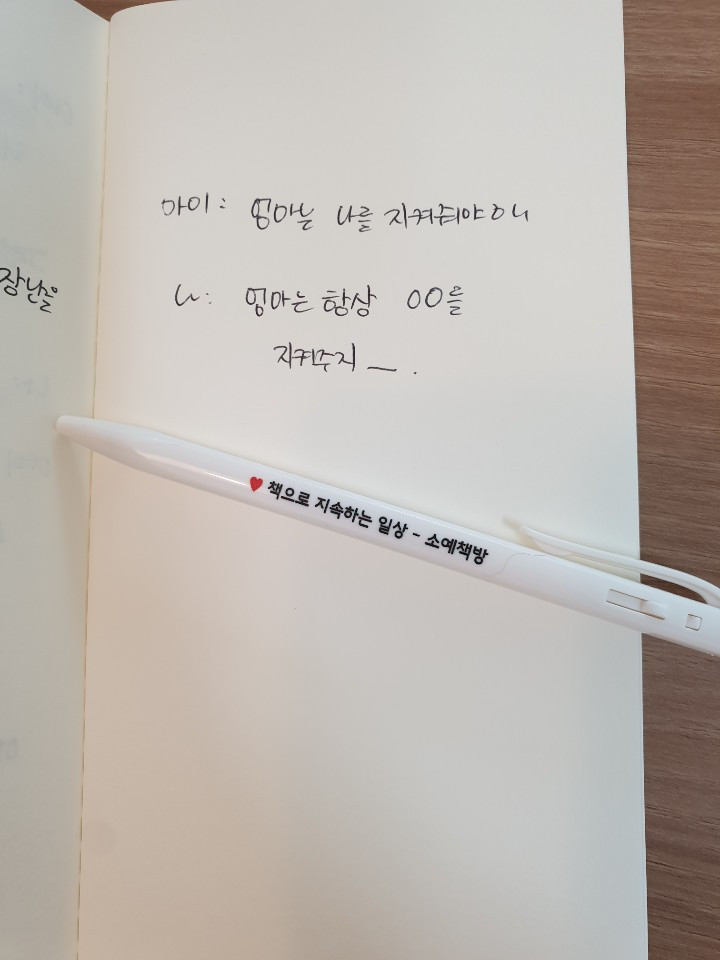 장난을
아이: 엄마는 나를 지켜줘야 하니
나: 엄마는 항상 OO을
지켜주지 __ .
♥ 책으로 지속하는 일상 - 소예책방